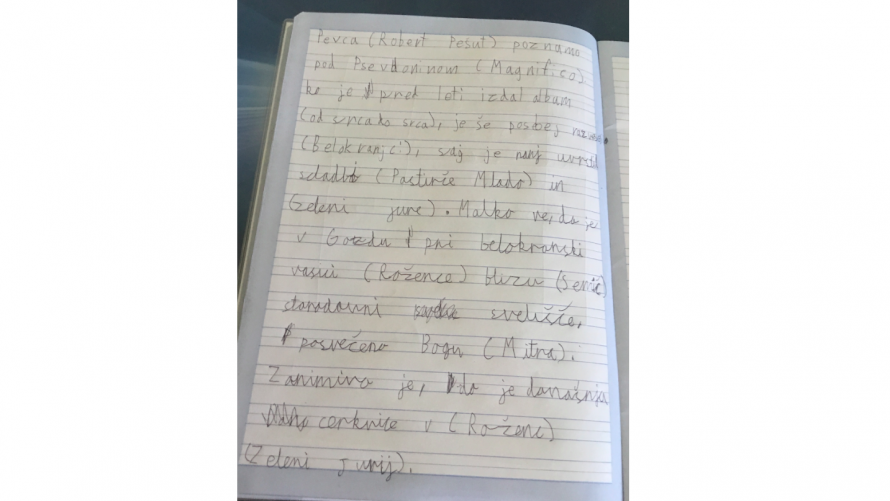 Pevca (Robert Pešut) poznamo
pod Psevdoninom (Magnifico)
ko je pred leti izdal album
(od srca do srca), je še posbej
(Belokranjci), saj je nanj uvrstil
skladbi (Pastirče Mlado) in
(Zeleni jure). Malko ve, da je
v Gozdu pri belokranski
vasici (Rožence) blizu (Semič)
starodavni svetišče,
posvečeno Bogu (Mitra).
Zanimivo je, da je današnja
cerkvice v (Roženc)
(Zeleni jurij).